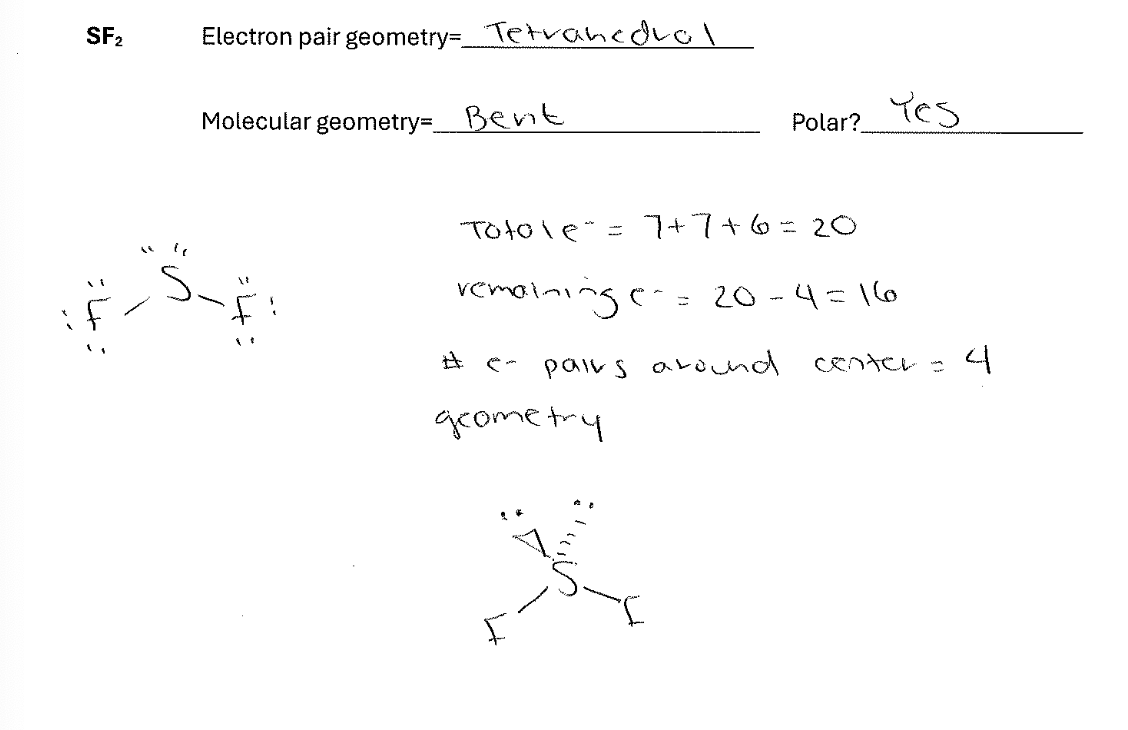 SF₂ Electron pair geometry= Tetrahedral
Molecular geometry= Bent Polar? Yes
Total e⁻ = 7+7+6=20
remaining e⁻ = 20-4=16
S
:F F:
# e- pairs around center = 4
geometry
S
F F